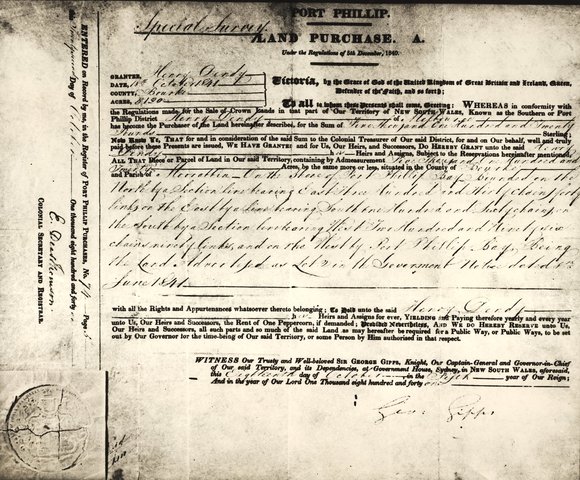 PORT PHILLIP.
Special Survey
LAND PURCHASE. A.
Under the Regulations of 5th December, 1840.
GRANTEE, Henry Dendy
DATE, 18th October 1841
COUNTY, Bourke
ACRES, 5120
Victoria, by the Grace of God of the United Kingdom of Great Britain and Ireland, Queen,
Defender of the Faith, and so forth;
To all to whom these Presents shall come, Greeting: WHEREAS in conformity with
the Regulations made, for the Sale of Crown Lands in that part of Our Territory of NEW SOUTH WALES, Known as the Southern or Port
Phillip District Henry Dendy
has become the Purchaser of the Land hereinafter described, for the Sum of Five thousand One Hundred and Twenty
Pounds Sterling:
Now Know Ye, THAT for and in consideration of the said Sum to the Colonial Treasurer of Our said District, for and on Our behalf, well and truly
paid before these Presents are issued, WE HAVE GRANTED: and for Us, Our Heirs, and Successors, DO HEREBY GRANT unto the said Henry
Dendy his Heirs and Assigns, Subject to the Reservations hereinafter mentioned,
ALL THAT Piece or Parcel of Land in Our said Territory, containing by Admeasurement Five Thousand One Hundred and
Twenty Acres, be the same more or less, situated in the County of Bourke
and Parish of Moorabbin - On the Shore of Port Phillip Bay Bounded on the
North by a Section line bearing East Three Hundred and Ninety chains forty
links on the East by a line bearing South One Hundred and Sixty chains on
the South by a Section line bearing West Two Hundred and Ninety six
chains ninety links, and on the West by Port Phillip Bay. Being
the Land Advertised as Lot 2 in the Government Notice dated
June 1841.
with all the Rights and Appurtenances whatsoever thereto belonging: To Hold unto the said Henry Dendy
his Heirs and Assigns for ever, YIELDING and Paying therefore yearly and every year
unto Us, Our Heirs and Successors, the Rent of One Peppercorn, if demanded; Provided Nevertheless, AND WE DO HEREBY RESERVE unto Us,
Our Heirs and Successors, all such parts and so much of the said Land as may hereafter be required for a Public Way, or Public Ways, to be set
out by Our Governor for the time-being of Our said Territory, or some Person by Him authorised in that respect.
WITNESS Our Trusty and Well-beloved SIR GEORGE GIPPS, Knight, Our Captain-General and Governor-in-Chief
of Our said Territory, and its Dependencies, at Government House, Sydney, in NEW SOUTH WALES, aforesaid,
this Eighteenth day of October in the Fifth year of Our Reign;
And in the year of Our Lord One Thousand eight hundred and forty one
Geo: Gipps
ENTERED on Record by me, in the Register of PORT PHILLIP PURCHASES, No. 74 Page 5
this day of October One thousand eight hundred and forty one
E Deas Thomson
COLONIAL SECRETARY AND REGISTRAR.